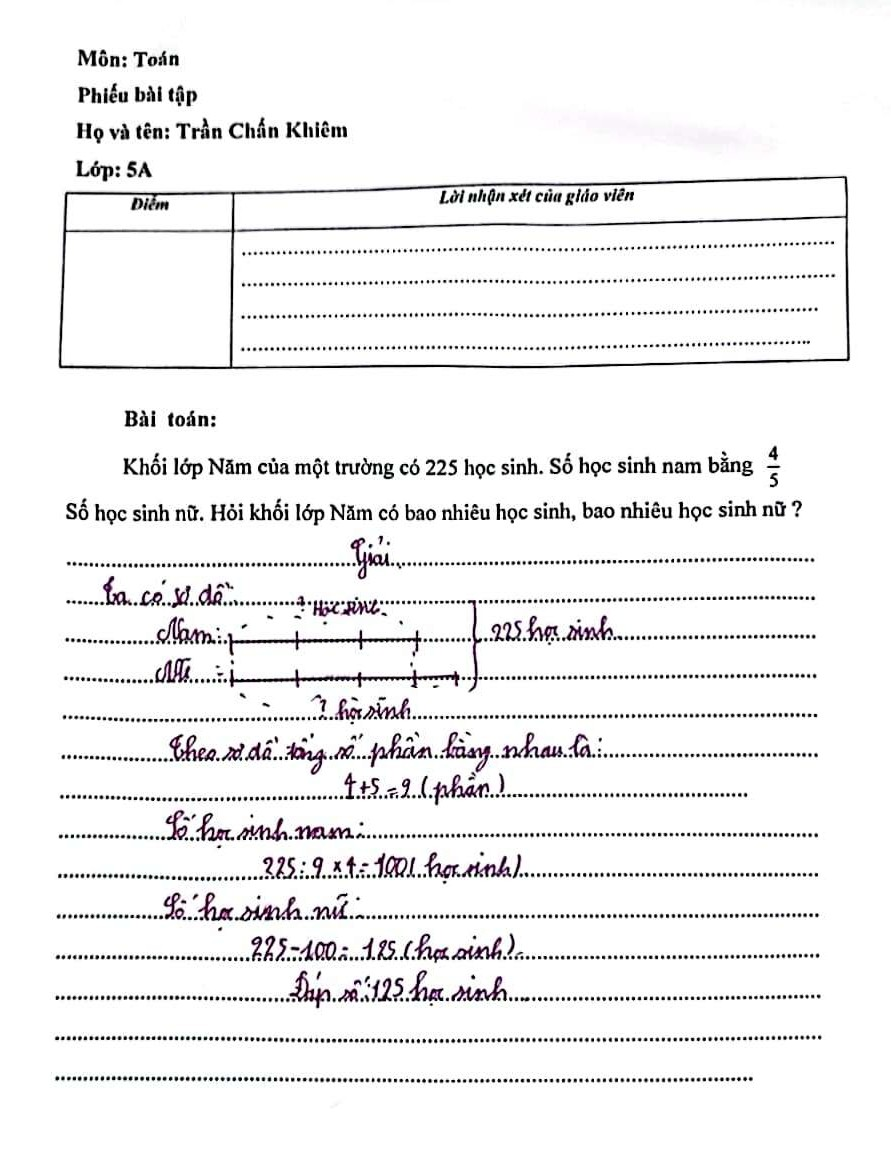 Môn: Toán
Phiếu bài tập
Họ và tên: Trần Chấn Khiêm
Lớp: 5A
Điểm
Lời nhận xét của giáo viên
Bài toán:
Khối lớp Năm của một trường có 225 học sinh. Số học sinh nam bằng 4/5
Số học sinh nữ. Hỏi khối lớp Năm có bao nhiêu học sinh, bao nhiêu học sinh nữ ?
Giải
Ta có sơ đồ:
? Học sinh.
Nam:
225 học sinh
Nữ :
? học sinh
Theo sơ đồ tổng số phần bằng nhau là:
4+5=9 (phần)
Số học sinh nam:
225 : 9 x 4 = 100 ( học sinh)
Số học sinh nữ:
225-100 = 125 (học sinh)
Đáp số: 125 học sinh